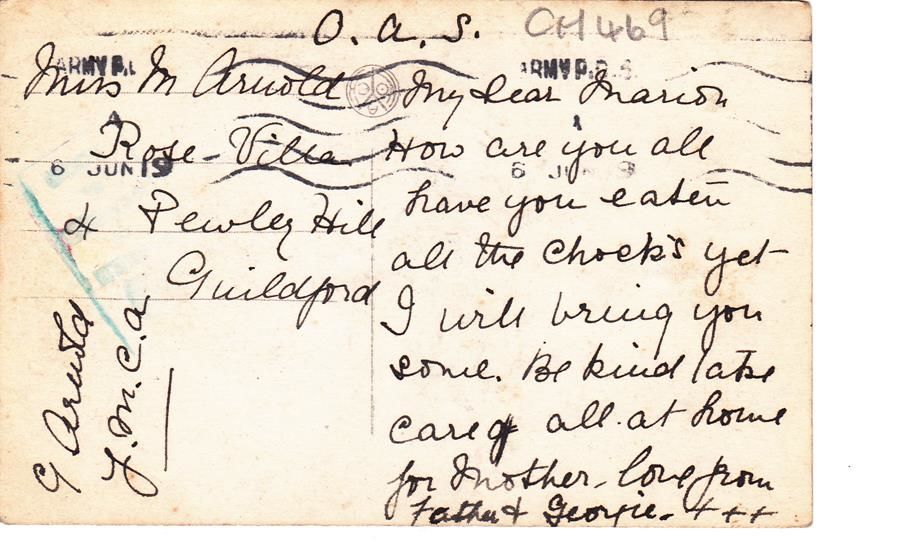 O. A. S.
CH469
Miss M Arnold
Rose-Villa
4 Pewley Hill
Guildford
G Arnold
Y.M.C.A
ARMY P.
A
6 JUN 19
ARMY P.
6 JU 9
My dear Marion
How are you all
have you eaten
all the chock's yet
I will bring you
some. Be kind take
care of all at home
for Mother. love from
Father & Georgie. + + +